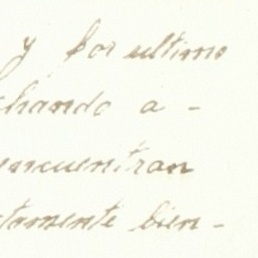 y por ultimo
chando a -
encuentran
ctamente bien-